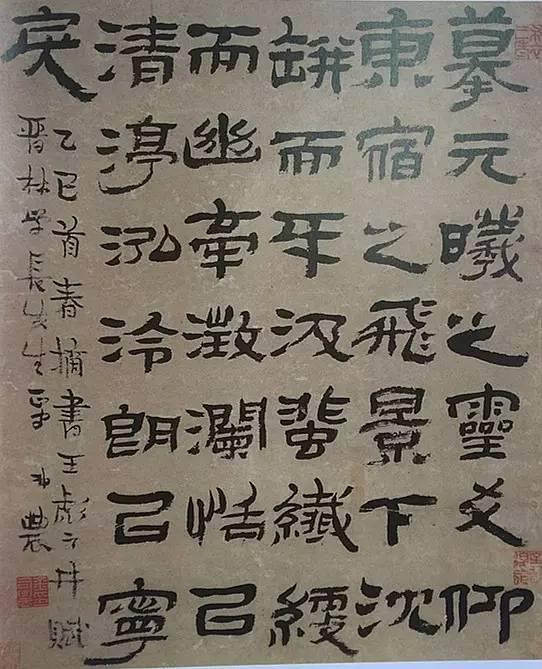 摹元曦之靈爻仰
東宿之飛景下沈
缾而牙汲蜚纖綆
而幽牽澂瀾恬已
清渟泓泠朗已寧
戾
乙巳首春摘書王彪之井賦
晋林学長先生 農